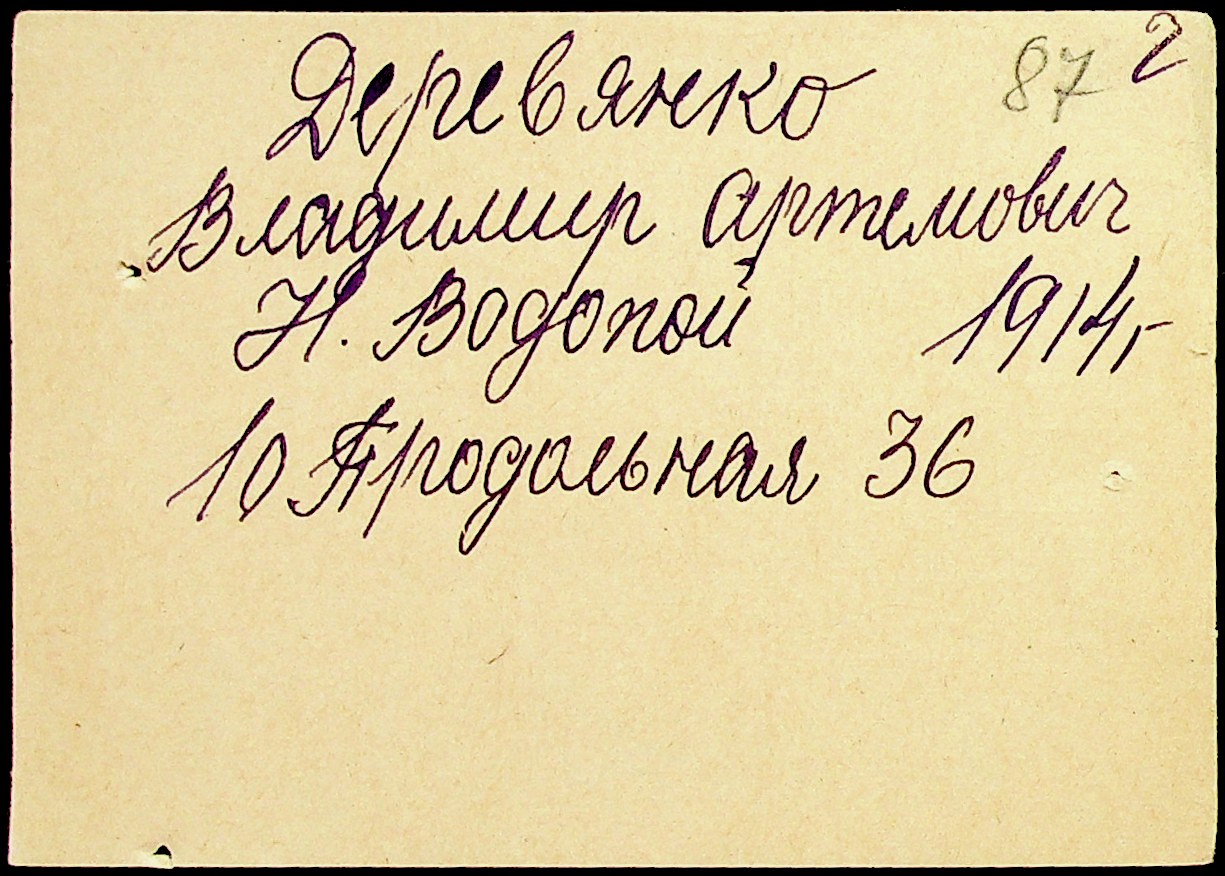 87 2
Деревянко
Владимир Артемович
Н. Водопой 1914,-
10 Продольная 36